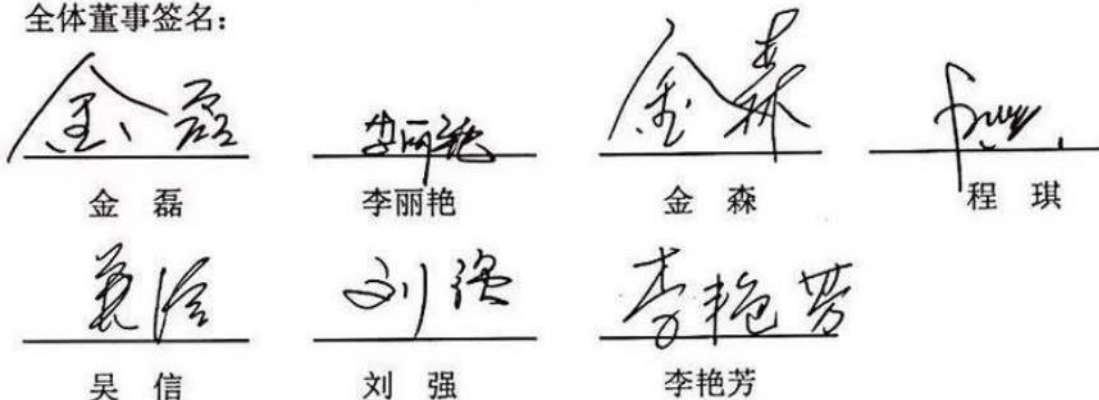 全体董事签名：
金磊 李丽艳 金森
金 磊 李丽艳 金 森 程 琪
吴信 刘强 李艳芳
吴 信 刘 强 李艳芳